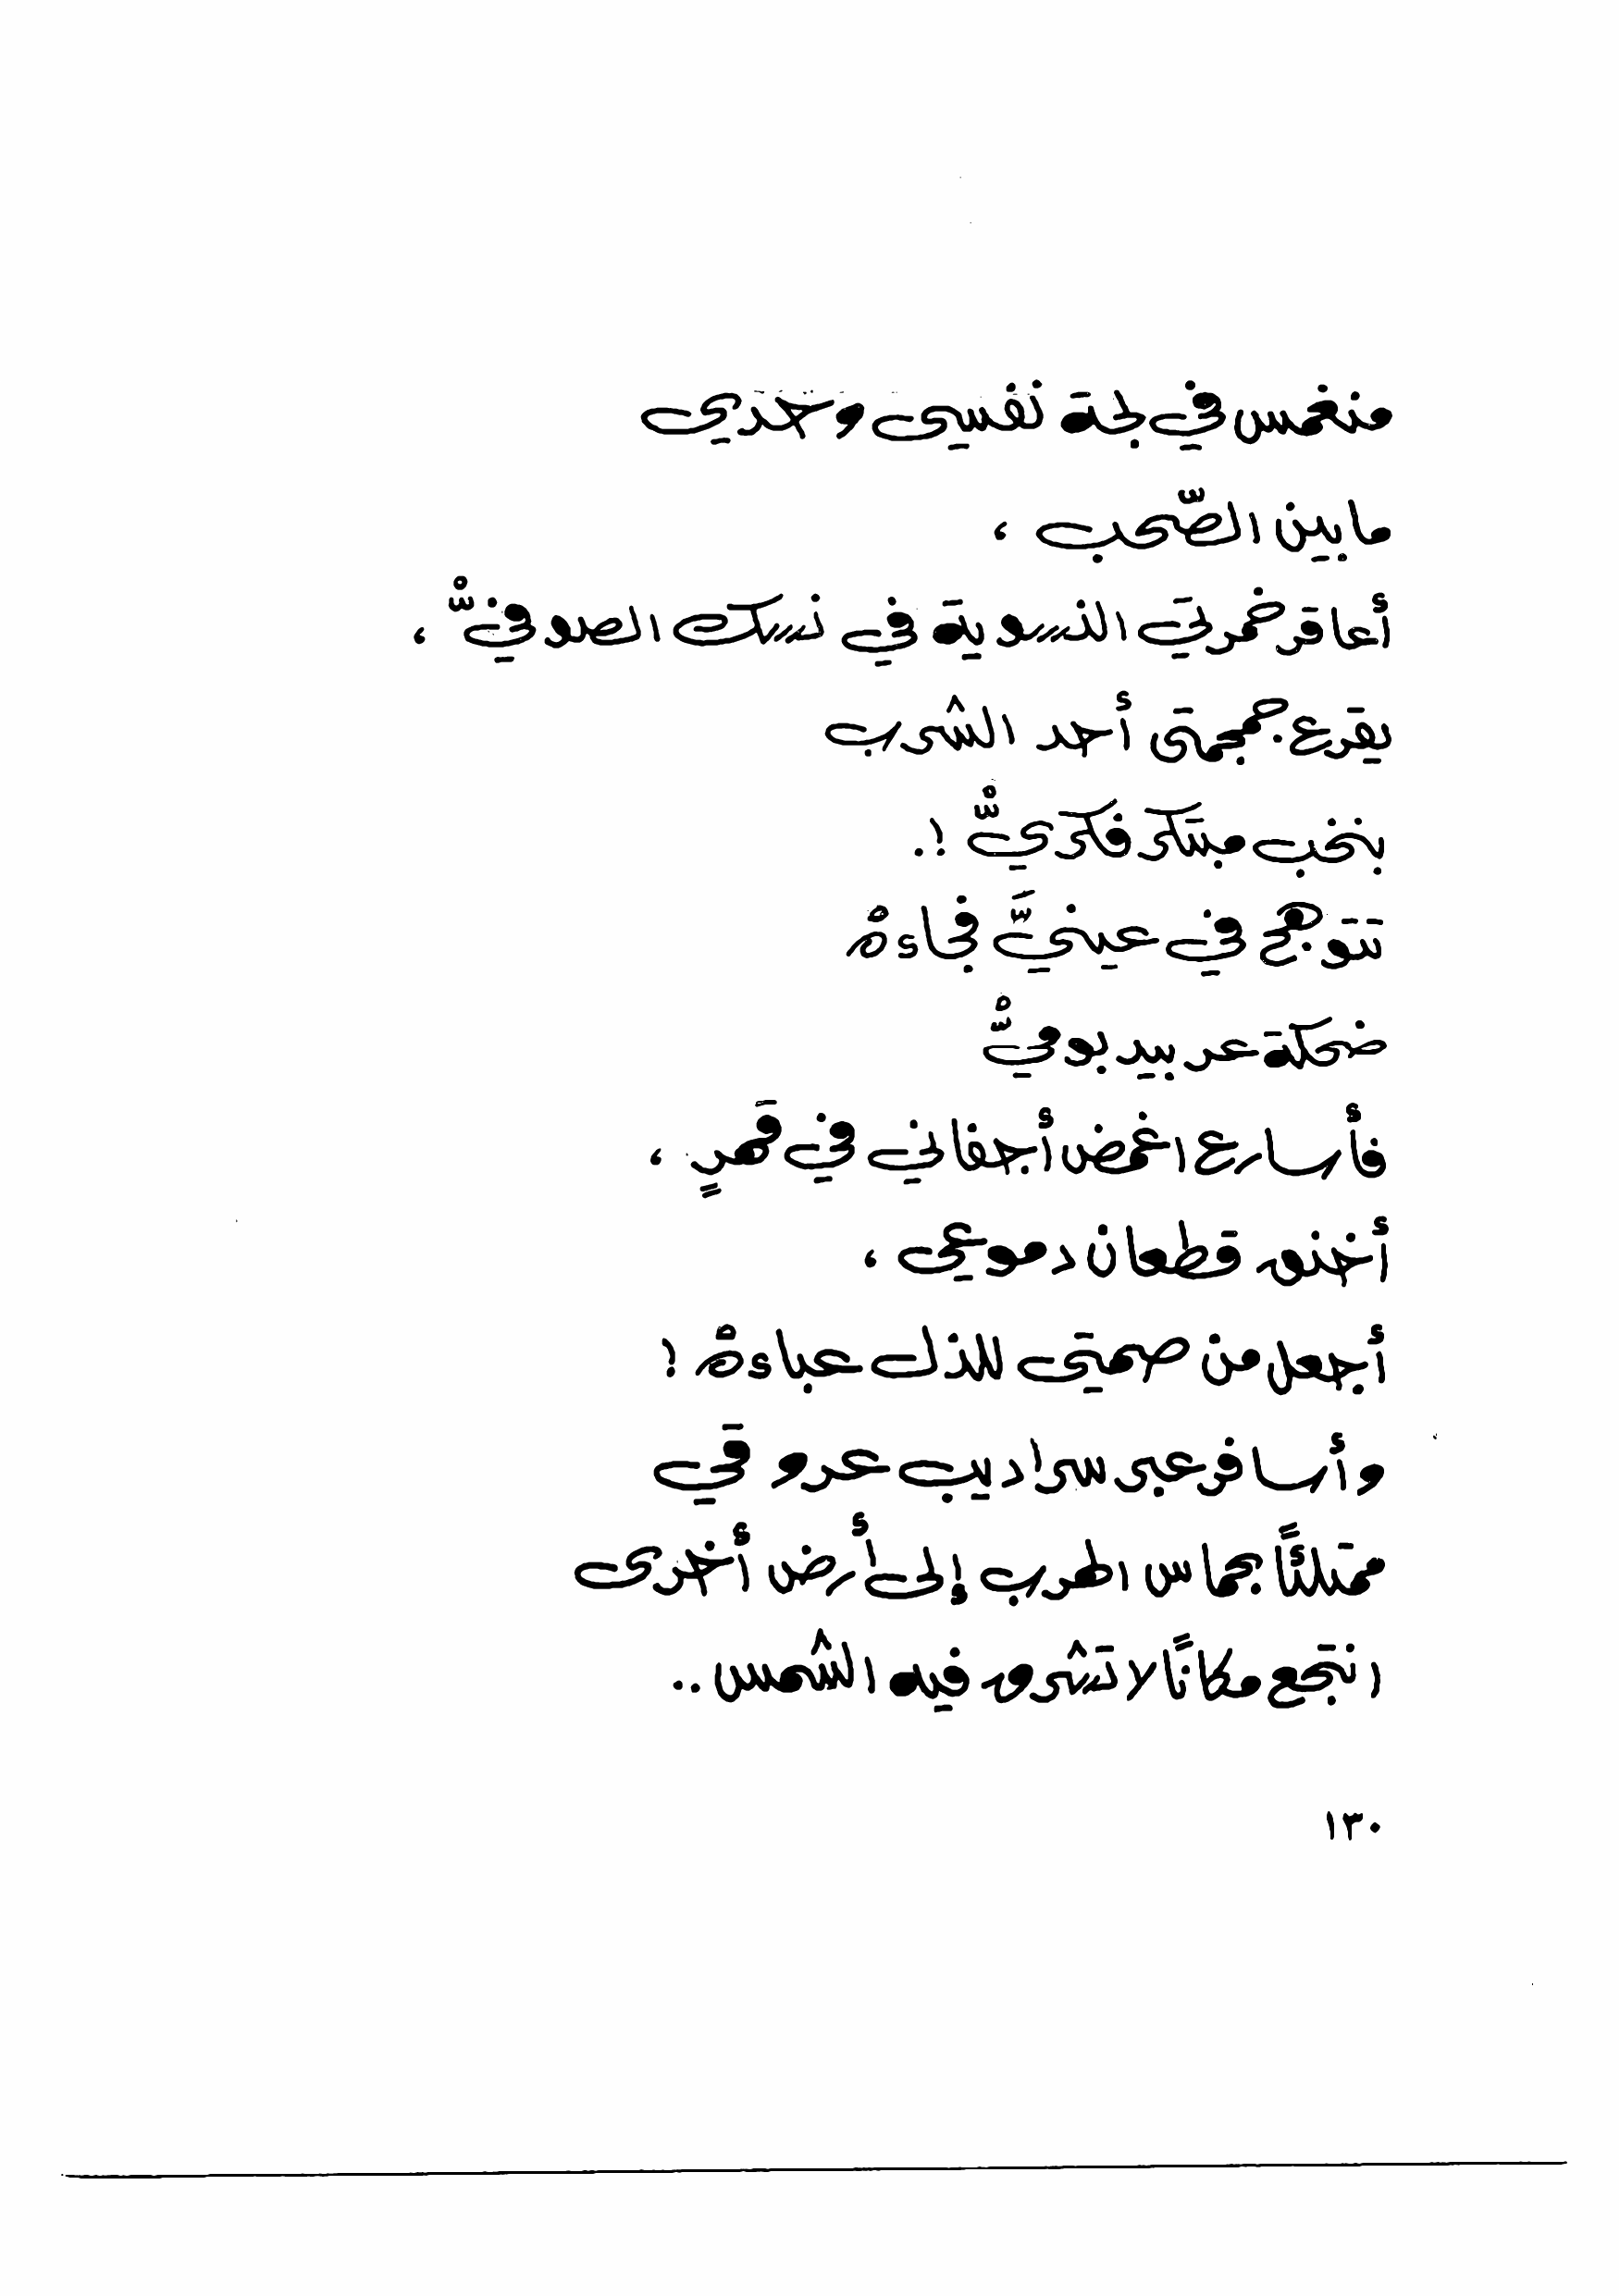 منغمس في لجة نفسي وحدي
ما بين الصّحب ،
أعاقر خمرتي النسوية في نسك الصوفيّْ ،
يقرع جمجمتي أحد الشرب
بنخب مبتكر فكريّْ !.
تتوهج في عينيَّ فجاءهْ
ضحكة عربيد بوميّْ
فأسارع اغمض أجفاني في قهرٍ ،
أخنق قطعان دموعي ،
أجعل من صمتي للذل عباءهْ !
وأسافر عبر سراديب عروقي
ممتلئًا بحماس الهرب إلى أرض أخرى
انتجع مكانًا لا تشرق فيه الشمس ..
١٣٠